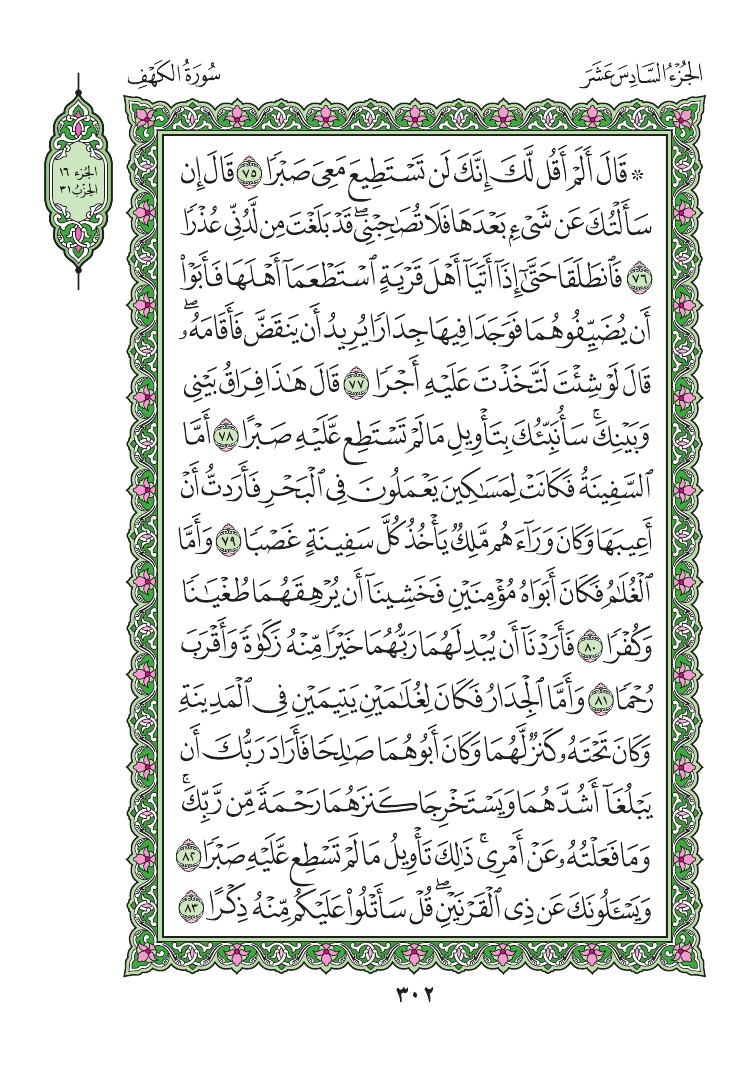 الجُزْءُ السَّادِسَ عَشَرَ
سُورَةُ الكَهْفِ
الجُزء ١٦
الحِزْبُ ٣١
۞ قَالَ أَلَمْ أَقُل لَّكَ إِنَّكَ لَن تَسْتَطِيعَ مَعِىَ صَبْرًا ٧٥ قَالَ إِن
سَأَلْتُكَ عَن شَىْءٍۭ بَعْدَهَا فَلَا تُصَٰحِبْنِىۖ قَدْ بَلَغْتَ مِن لَّدُنِّى عُذْرًا
٧٦ فَٱنطَلَقَا حَتَّىٰٓ إِذَآ أَتَيَآ أَهْلَ قَرْيَةٍ ٱسْتَطْعَمَآ أَهْلَهَا فَأَبَوْا۟
أَن يُضَيِّفُوهُمَا فَوَجَدَا فِيهَا جِدَارًا يُرِيدُ أَن يَنقَضَّ فَأَقَامَهُۥۖ
قَالَ لَوْ شِئْتَ لَتَّخَذْتَ عَلَيْهِ أَجْرًا ٧٧ قَالَ هَٰذَا فِرَاقُ بَيْنِى
وَبَيْنِكَۚ سَأُنَبِّئُكَ بِتَأْوِيلِ مَا لَمْ تَسْتَطِع عَّلَيْهِ صَبْرًا ٧٨ أَمَّا
ٱلسَّفِينَةُ فَكَانَتْ لِمَسَٰكِينَ يَعْمَلُونَ فِى ٱلْبَحْرِ فَأَرَدتُّ أَنْ
أَعِيبَهَا وَكَانَ وَرَآءَهُم مَّلِكٌ يَأْخُذُ كُلَّ سَفِينَةٍ غَصْبًا ٧٩ وَأَمَّا
ٱلْغُلَٰمُ فَكَانَ أَبَوَاهُ مُؤْمِنَيْنِ فَخَشِينَآ أَن يُرْهِقَهُمَا طُغْيَٰنًا
وَكُفْرًا ٨٠ فَأَرَدْنَآ أَن يُبْدِلَهُمَا رَبُّهُمَا خَيْرًا مِّنْهُ زَكَوٰةً وَأَقْرَبَ
رُحْمًا ٨١ وَأَمَّا ٱلْجِدَارُ فَكَانَ لِغُلَٰمَيْنِ يَتِيمَيْنِ فِى ٱلْمَدِينَةِ
وَكَانَ تَحْتَهُۥ كَنزٌ لَّهُمَا وَكَانَ أَبُوهُمَا صَٰلِحًا فَأَرَادَ رَبُّكَ أَن
يَبْلُغَآ أَشُدَّهُمَا وَيَسْتَخْرِجَا كَنزَهُمَا رَحْمَةً مِّن رَّبِّكَۚ
وَمَا فَعَلْتُهُۥ عَنْ أَمْرِىۚ ذَٰلِكَ تَأْوِيلُ مَا لَمْ تَسْطِع عَّلَيْهِ صَبْرًا ٨٢
وَيَسْـَٔلُونَكَ عَن ذِى ٱلْقَرْنَيْنِۖ قُلْ سَأَتْلُوا۟ عَلَيْكُم مِّنْهُ ذِكْرًا ٨٣
٣٠٢